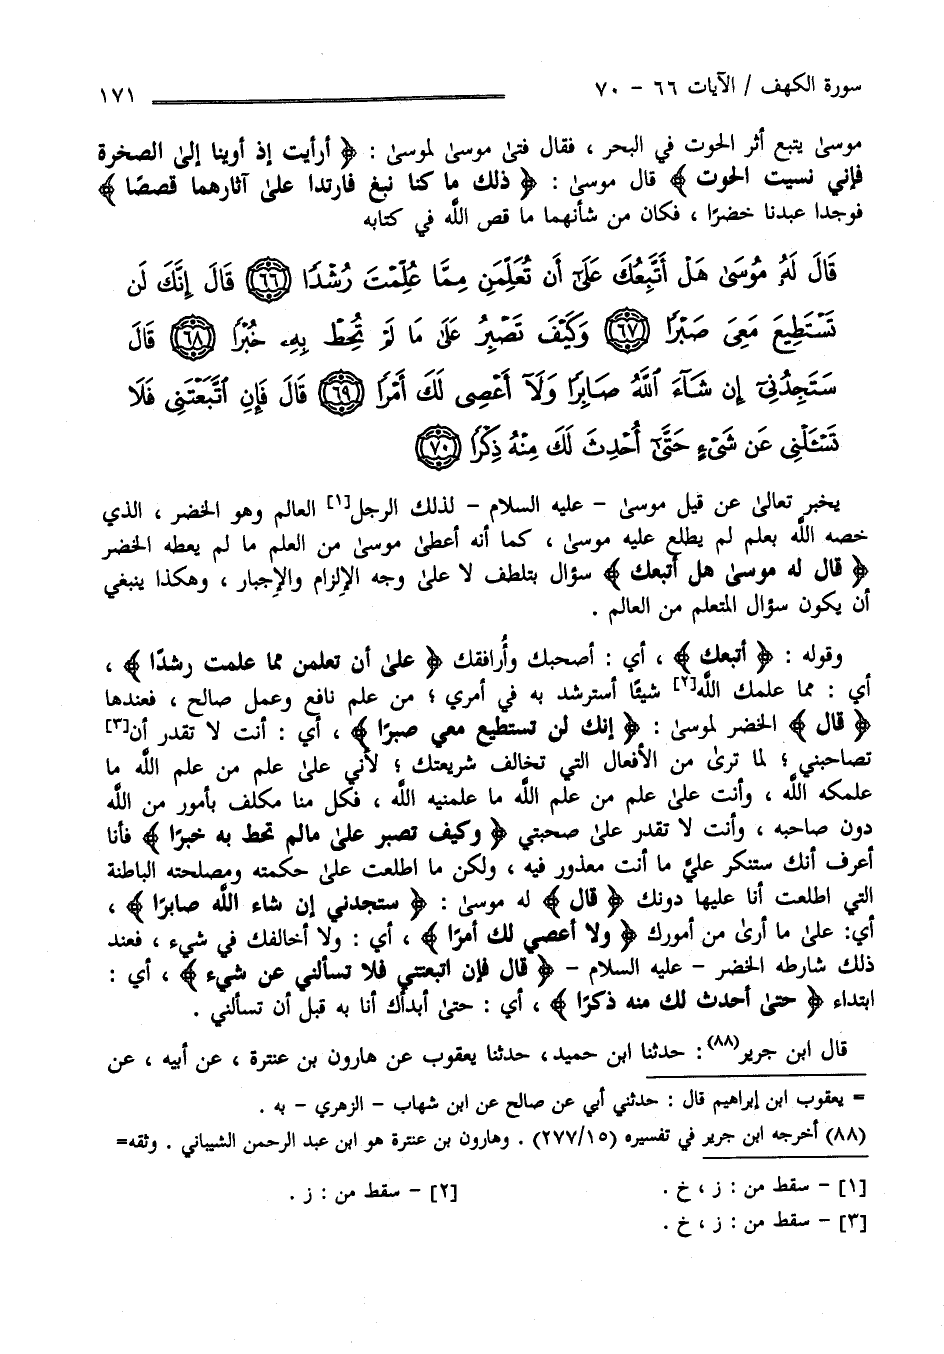 سورة الكهف / الآيات ٦٦ - ٧٠ ١٧١
موسىٰ يتبع أثر الحوت في البحر ، فقال فتىٰ موسىٰ لموسىٰ : ﴿ أرأيت إذ أوينا إلىٰ الصخرة
فإني نسيت الحوت ﴾ قال موسىٰ : ﴿ ذلك ما كنا نبغ فارتدا علىٰ آثارهما قصصًا ﴾
فوجدا عبدنا خضرًا ، فكان من شأنهما ما قص اللَّه في كتابه
قَالَ لَهُۥ مُوسَىٰ هَلْ أَتَّبِعُكَ عَلَىٰٓ أَن تُعَلِّمَنِ مِمَّا عُلِّمْتَ رُشْدًا ﴿٦٦﴾ قَالَ إِنَّكَ لَن
تَسْتَطِيعَ مَعِىَ صَبْرًا ﴿٦٧﴾ وَكَيْفَ تَصْبِرُ عَلَىٰ مَا لَمْ تُحِطْ بِهِۦ خُبْرًا ﴿٦٨﴾ قَالَ
سَتَجِدُنِىٓ إِن شَآءَ ٱللَّهُ صَابِرًا وَلَآ أَعْصِى لَكَ أَمْرًا ﴿٦٩﴾ قَالَ فَإِنِ ٱتَّبَعْتَنِى فَلَا
تَسْـَٔلْنِى عَن شَىْءٍ حَتَّىٰٓ أُحْدِثَ لَكَ مِنْهُ ذِكْرًا ﴿٧٠﴾
يخبر تعالىٰ عن قيل موسىٰ - عليه السلام - لذلك الرجل[١] العالم وهو الخضر ، الذي
خصه اللَّه بعلم لم يطلع عليه موسىٰ ، كما أنه أعطىٰ موسىٰ من العلم ما لم يعطه الخضر
﴿ قال له موسىٰ هل أتبعك ﴾ سؤال بتلطف لا علىٰ وجه الإلزام والإجبار ، وهكذا ينبغي
أن يكون سؤال المتعلم من العالم .
وقوله : ﴿ أتبعك ﴾ ، أي : أصحبك وأُرافقك ﴿ علىٰ أن تعلمن مما علمت رشدًا ﴾ ،
أي : مما علمك اللَّه[٢] شيئًا أسترشد به في أمري ؛ من علم نافع وعمل صالح ، فعندها
﴿ قال ﴾ الخضر لموسىٰ : ﴿ إنك لن تستطيع معي صبرًا ﴾ ، أي : أنت لا تقدر أن[٣]
تصاحبني ؛ لما ترىٰ من الأفعال التي تخالف شريعتك ؛ لأني علىٰ علم من علم اللَّه ما
علمكه اللَّه ، وأنت علىٰ علم من علم اللَّه ما علمنيه اللَّه ، فكل منا مكلف بأمور من اللَّه
دون صاحبه ، وأنت لا تقدر علىٰ صحبتي ﴿ وكيف تصبر علىٰ مالم تحط به خبرًا ﴾ فأنا
أعرف أنك ستنكر عليَّ ما أنت معذور فيه ، ولكن ما اطلعت علىٰ حكمته ومصلحته الباطنة
التي اطلعت أنا عليها دونك ﴿ قال ﴾ له موسىٰ : ﴿ ستجدني إن شاء اللَّه صابرًا ﴾ ،
أي: علىٰ ما أرىٰ من أمورك ﴿ ولا أعصي لك أمرًا ﴾ ، أي : ولا أخالفك في شيء ، فعند
ذلك شارطه الخضر - عليه السلام - ﴿ قال فإن اتبعتني فلا تسألني عن شيء ﴾ ، أي :
ابتداء ﴿ حتىٰ أحدث لك منه ذكرًا ﴾ ، أي : حتىٰ أبدأك أنا به قبل أن تسألني .
قال ابن جرير(٨٨) : حدثنا ابن حميد، حدثنا يعقوب عن هارون بن عنترة ، عن أبيه ، عن
= يعقوب ابن إبراهيم قال : حدثني أبي عن صالح عن ابن شهاب - الزهري - به .
(٨٨) أخرجه ابن جرير في تفسيره (٢٧٧/١٥) . وهارون بن عنترة هو ابن عبد الرحمن الشيباني . وثقه=
[١] - سقط من : ز ، خ . [٢] - سقط من : ز .
[٣] - سقط من : ز ، خ .